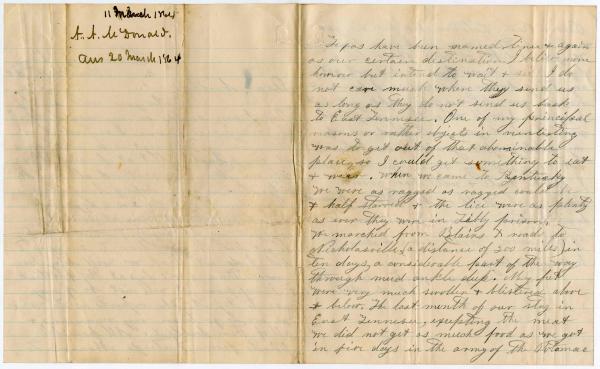 11 March 1864
A. A. McDonald.
Ans 20 March 1864
Texas have been named time & again
as our certain destination I
know but intend to wait & see. I do
not care much where they send us
as long as they do not send us back
to East Tennesee. One of my principal
reasons or rather objects in reenlisting
was to get out of that abominable
place so I could get something to eat
& wear. When we came to Kentucky
we were as ragged as ragged could be
& half starved & the lice were as plenty
as ever they were in Libby prison.
We marched from Blains X roads to
Nicholasville, (a distance of 200 miles) in
ten days, a considerable part of the way
through mud ankle deep. My feet
were very much swollen & blistered above
& below. The last month of our stay in
East Tennesee, excepting the meat
we did not get as much food as we got
in five days in the army of the Potomac